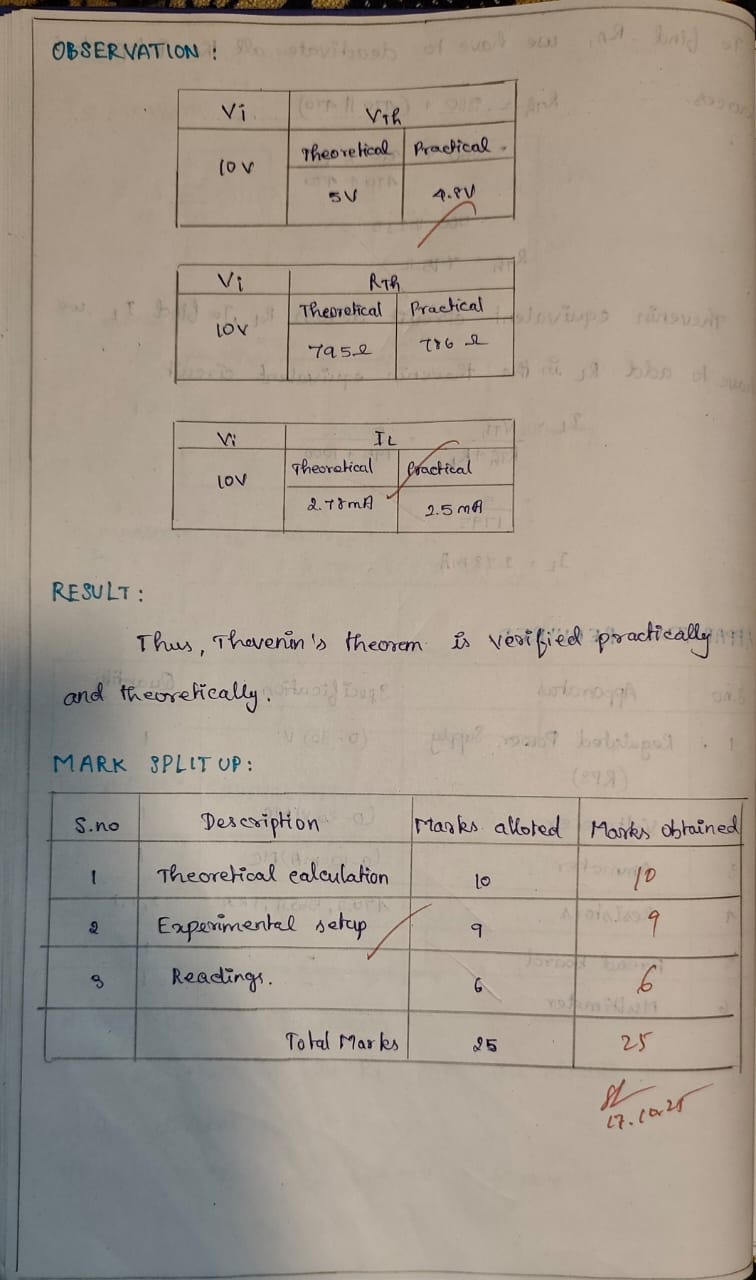 OBSERVATION :
Vi VTh
10V Theoretical Practical
5V 4.8V
Vi RTh
10V Theoretical Practical
795Ω 786 Ω
Vi IL
10V Theoretical Practical
2.78mA 2.5 mA
RESULT :
Thus, Thevenin's theorem is verified practically
and theoretically.
MARK SPLIT UP :
S.no Description Marks alloted Marks obtained
1 Theoretical calculation 10 10
2 Experimental setup 9 9
3 Readings. 6 6
Total Marks 25 25
17.10.25